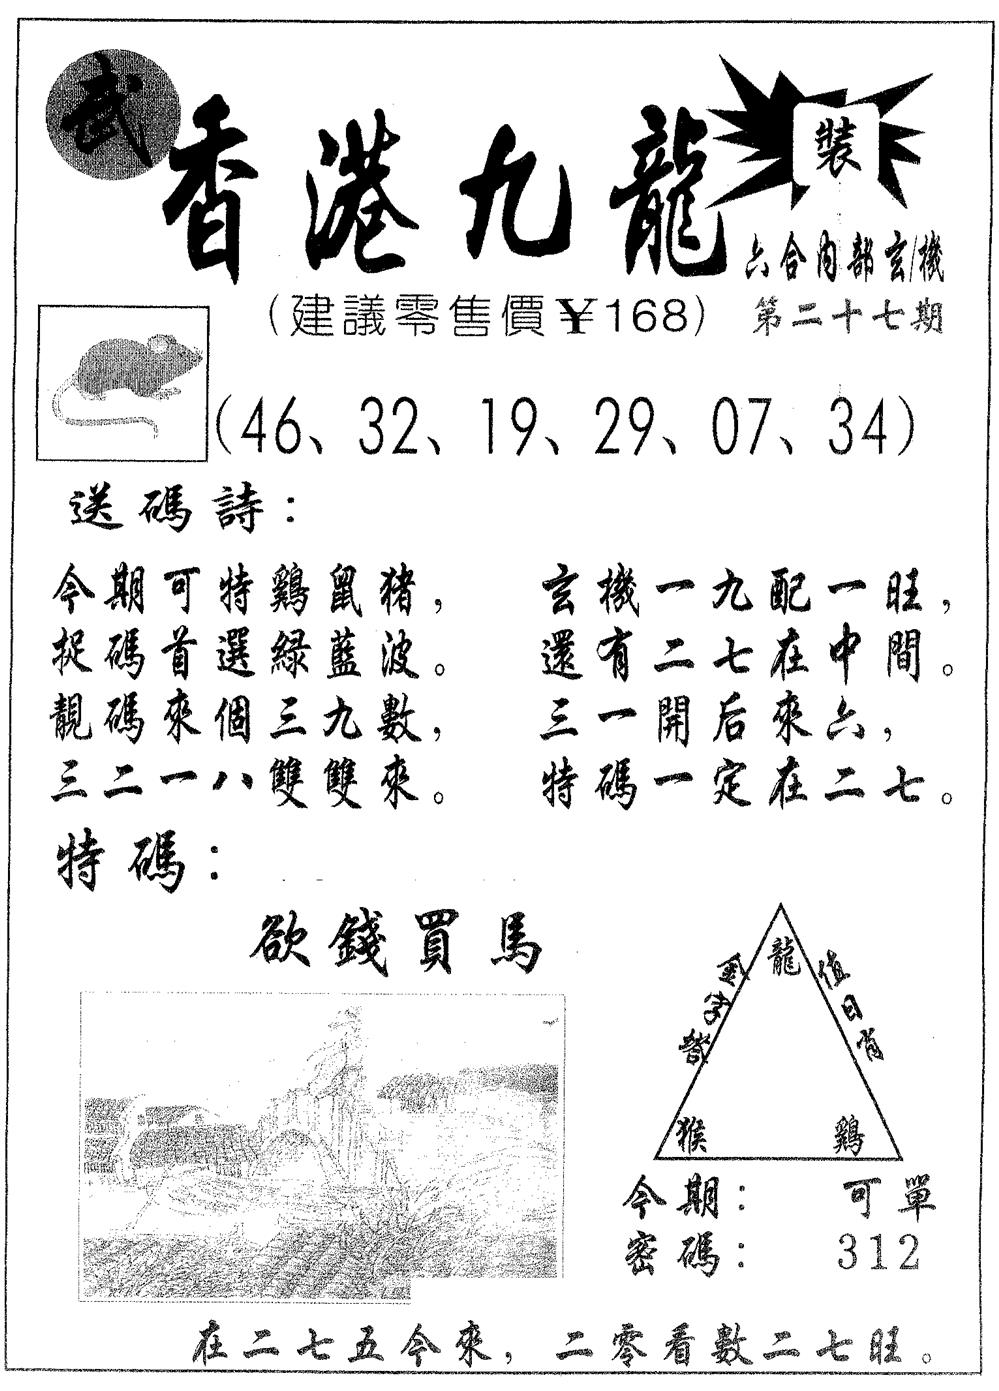 武
香港九龍
裝
六合内部玄機
（建議零售價¥168）
第二十七期
（46、32、19、29、07、34）
送碼詩：
今期可特鷄鼠猪，
捉碼首選緑藍波。
靚碼來個三九數，
三二一八雙雙來。
玄機一九配一旺，
還有二七在中間。
三一開后來六，
特碼一定在二七。
特碼：
欲錢買馬
金字塔
龍
值日肖
猴
鷄
今期：可單
密碼：312
在二七五今來，二零看數二七旺。